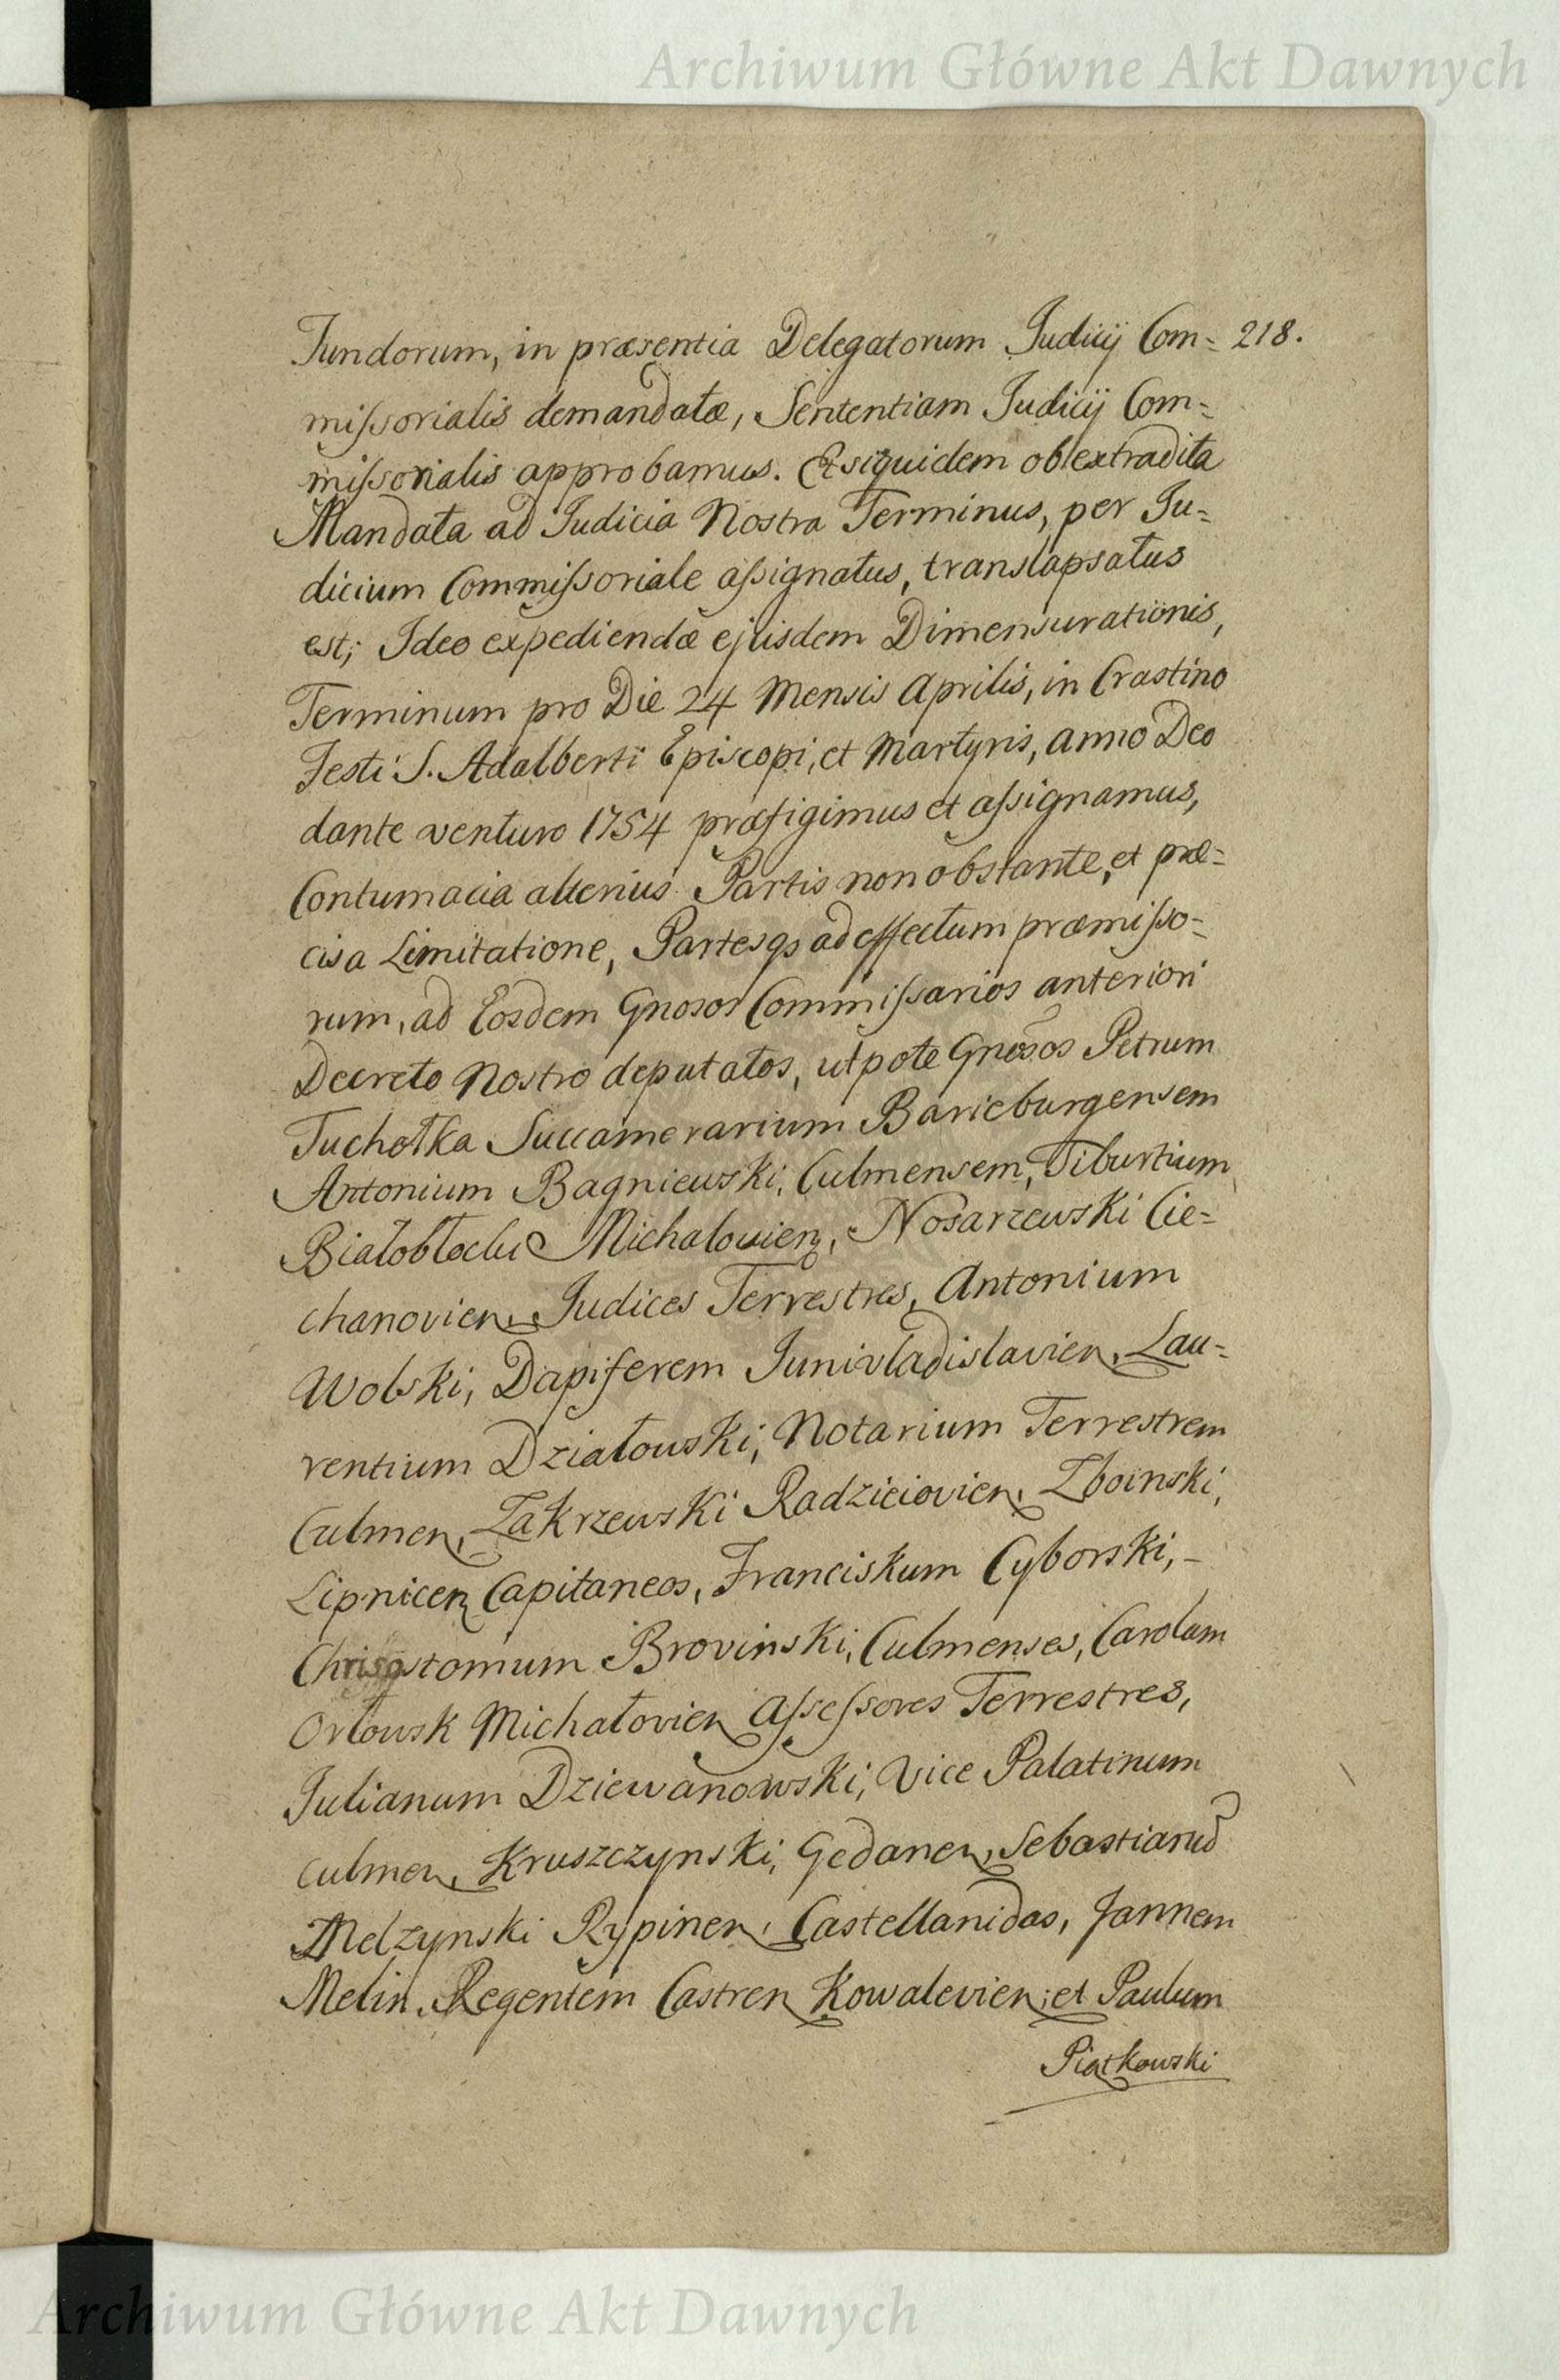 Archiwum Główne Akt Dawnych
Fundorum, in præsentia Delegatorum Judicij Com= 218.
missorialis demandatæ, Sententiam Judicij Com=
missorialis approbamus. Et siquidem ob extradita
Mandata ad Judicia Nostra Terminus, per Ju=
dicium Commissoriale assignatus, translapsatus
est; Ideo expediendæ ejusdem Dimensurationis,
Terminum pro Die 24 Mensis Aprilis, in Crastino
Festi S. Adalberti Episcopi, et Martyris, anno Deo
dante venturo 1754 præfigimus et assignamus,
Contumacia alterius Partis non obstante, et præ=
cisa Limitatione, Partesqs ad effectum præmisso=
rum, ad Eosdem Gnosos Commissarios anteriori
Decreto Nostro deputatos, utpote Gnosos Petrum
Tuchołka Succamerarium Marieburgensem
Antonium Bagniewski, Culmensem, Tiburtium
Białobłocki Michalovien, Nosarzewski Cie=
chanovien, Judices Terrestres, Antonium
Wolski, Dapiferem Junivladislavien, Lau=
rentium Działowski, Notarium Terrestrem
Culmen, Zakrzewski Radzieiovien, Zboinski,
Lipnicen Capitaneos, Franciskum Cyborski,-
Chrisostomum Brovinski, Culmenses, Carolum
Orłowsk Michałovien Assessores Terrestres,
Julianum Dziewanowski, Vice Palatinum
Culmen, Kruszczynski, Gedanen, Sebastianu
Melzynski Rypinen, Castellanidas, Jannem
Melin, Regentem Castren Kowalevien, et Paulum
Piatkowski
Archiwum Główne Akt Dawnych